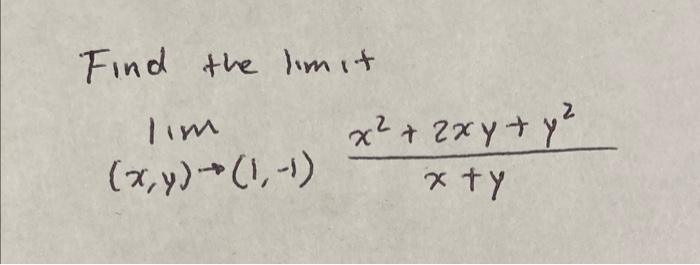 Find the limit
lim (x,y)→(1,-1) x² + 2xy + y² / x + y